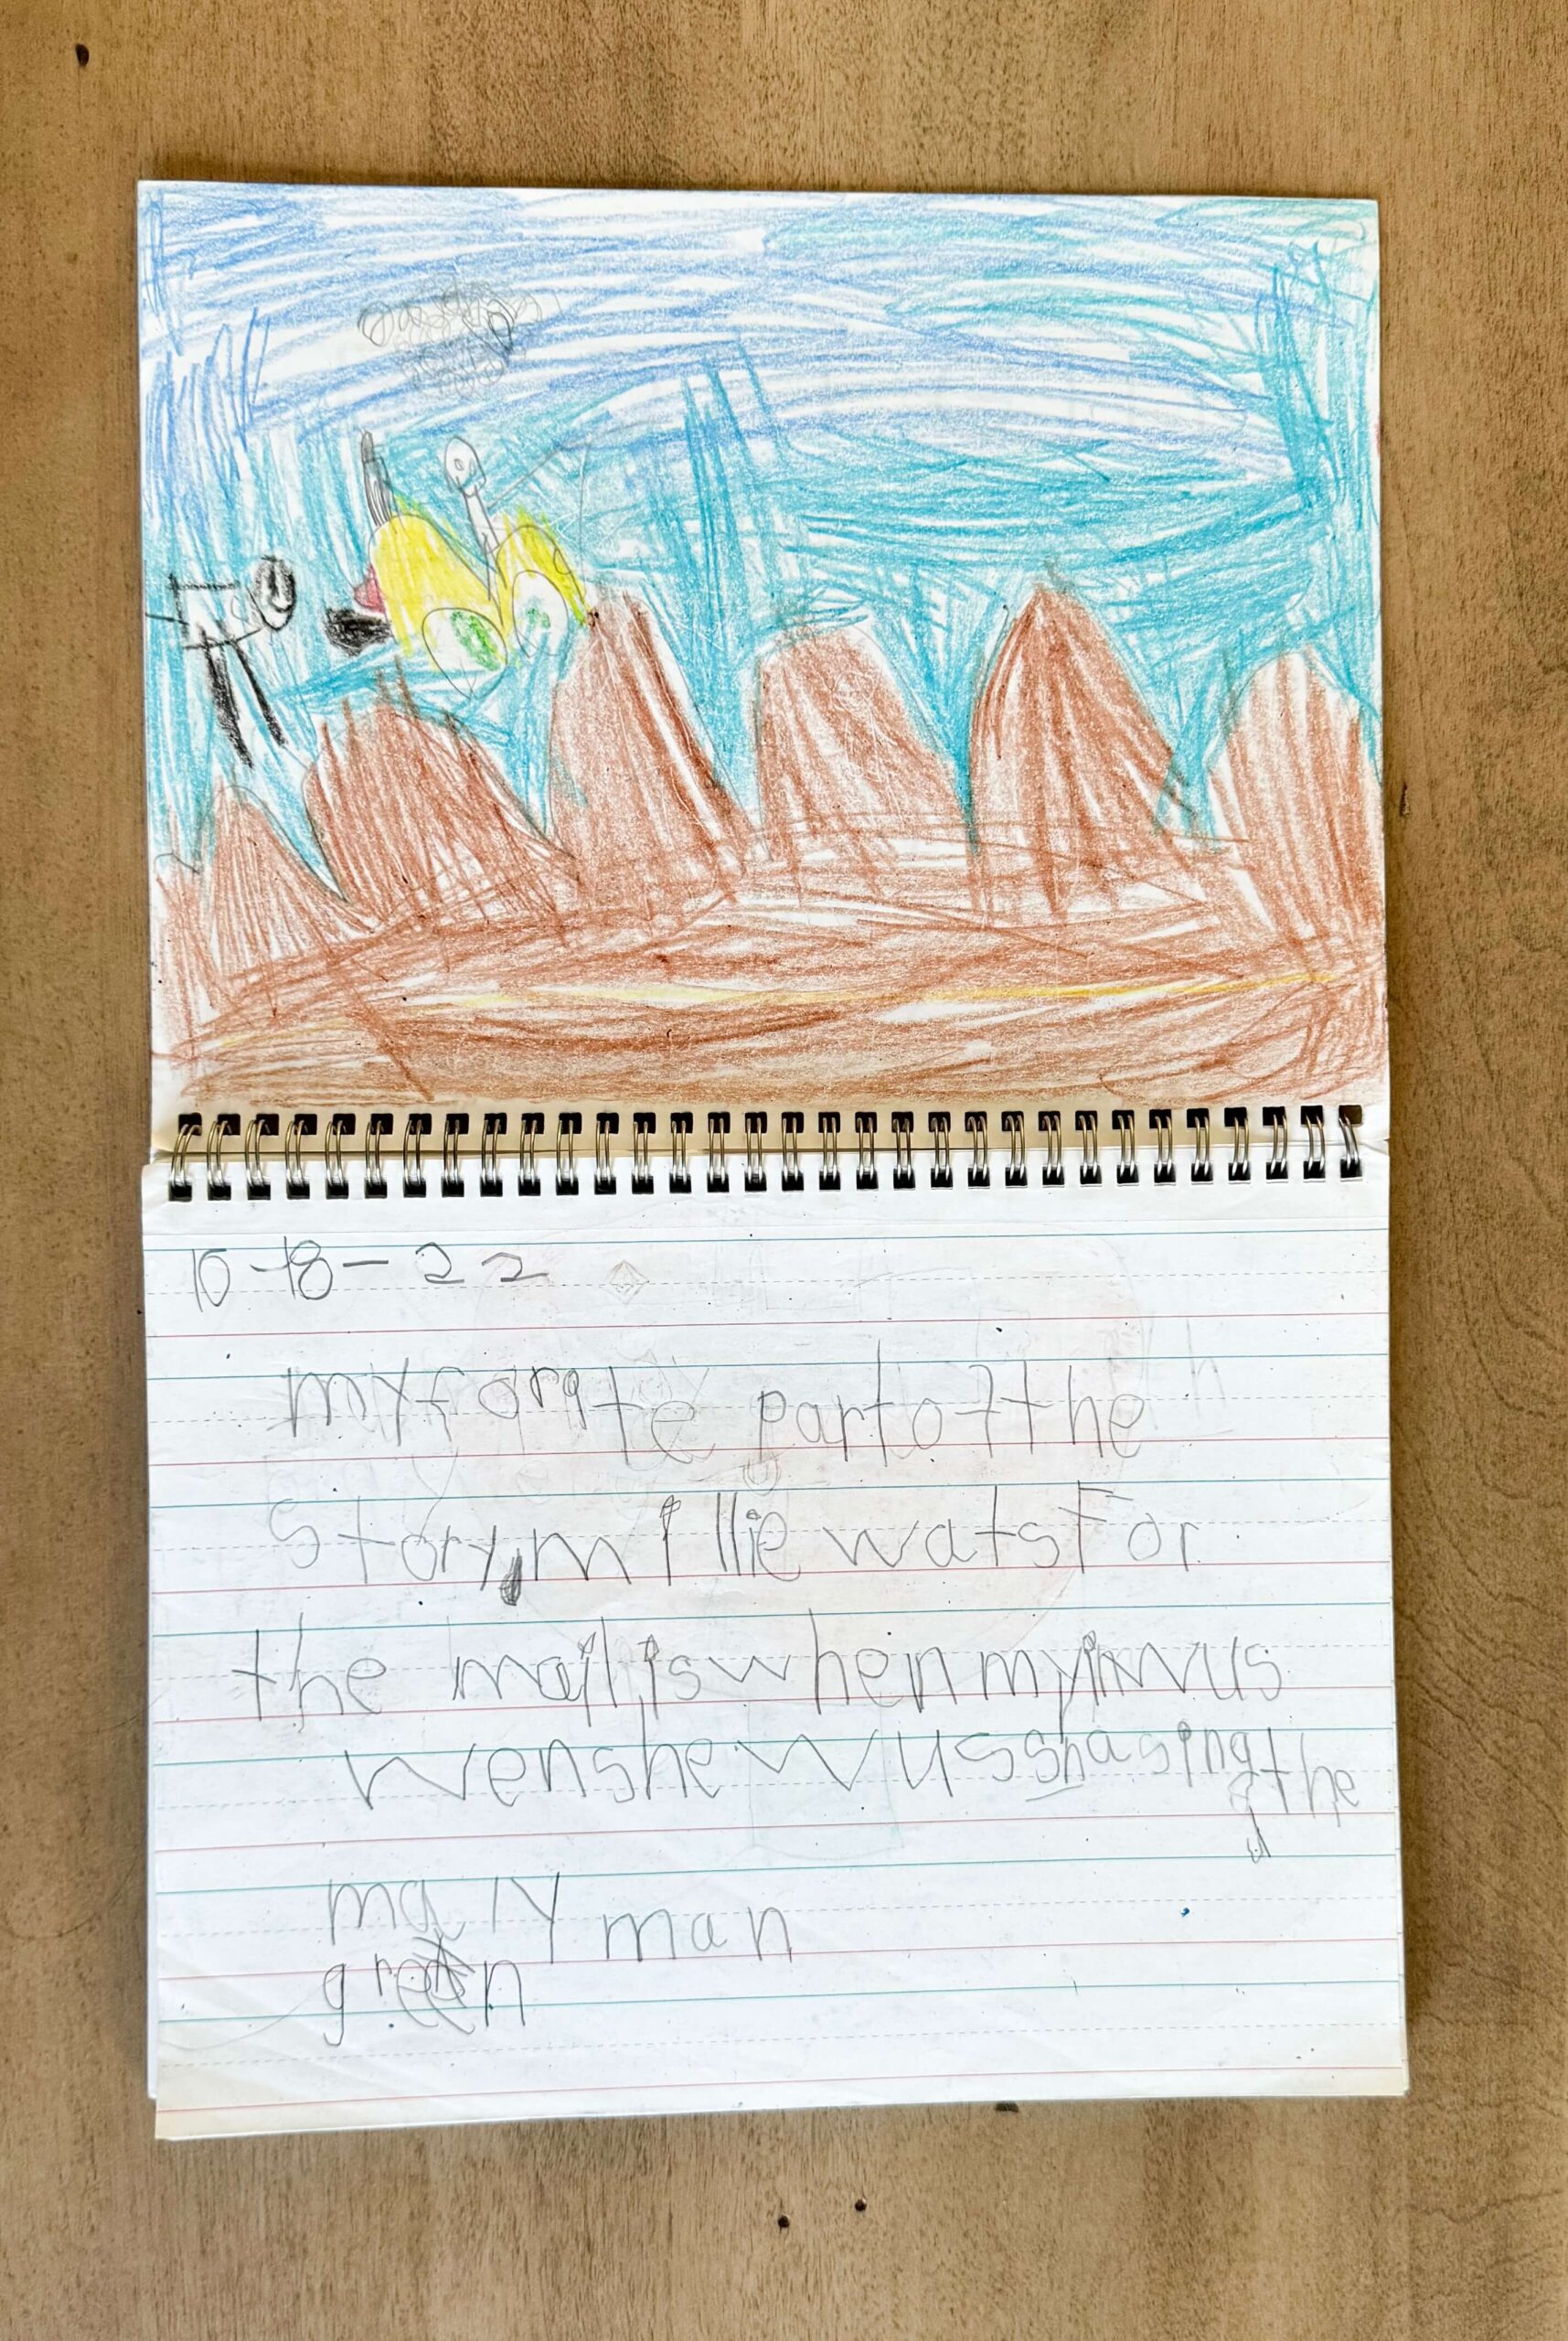 10-18-22
my forate part of the
story, millie wats For
the mail, is when my im wus
wen she wus shasing the
maly man
green